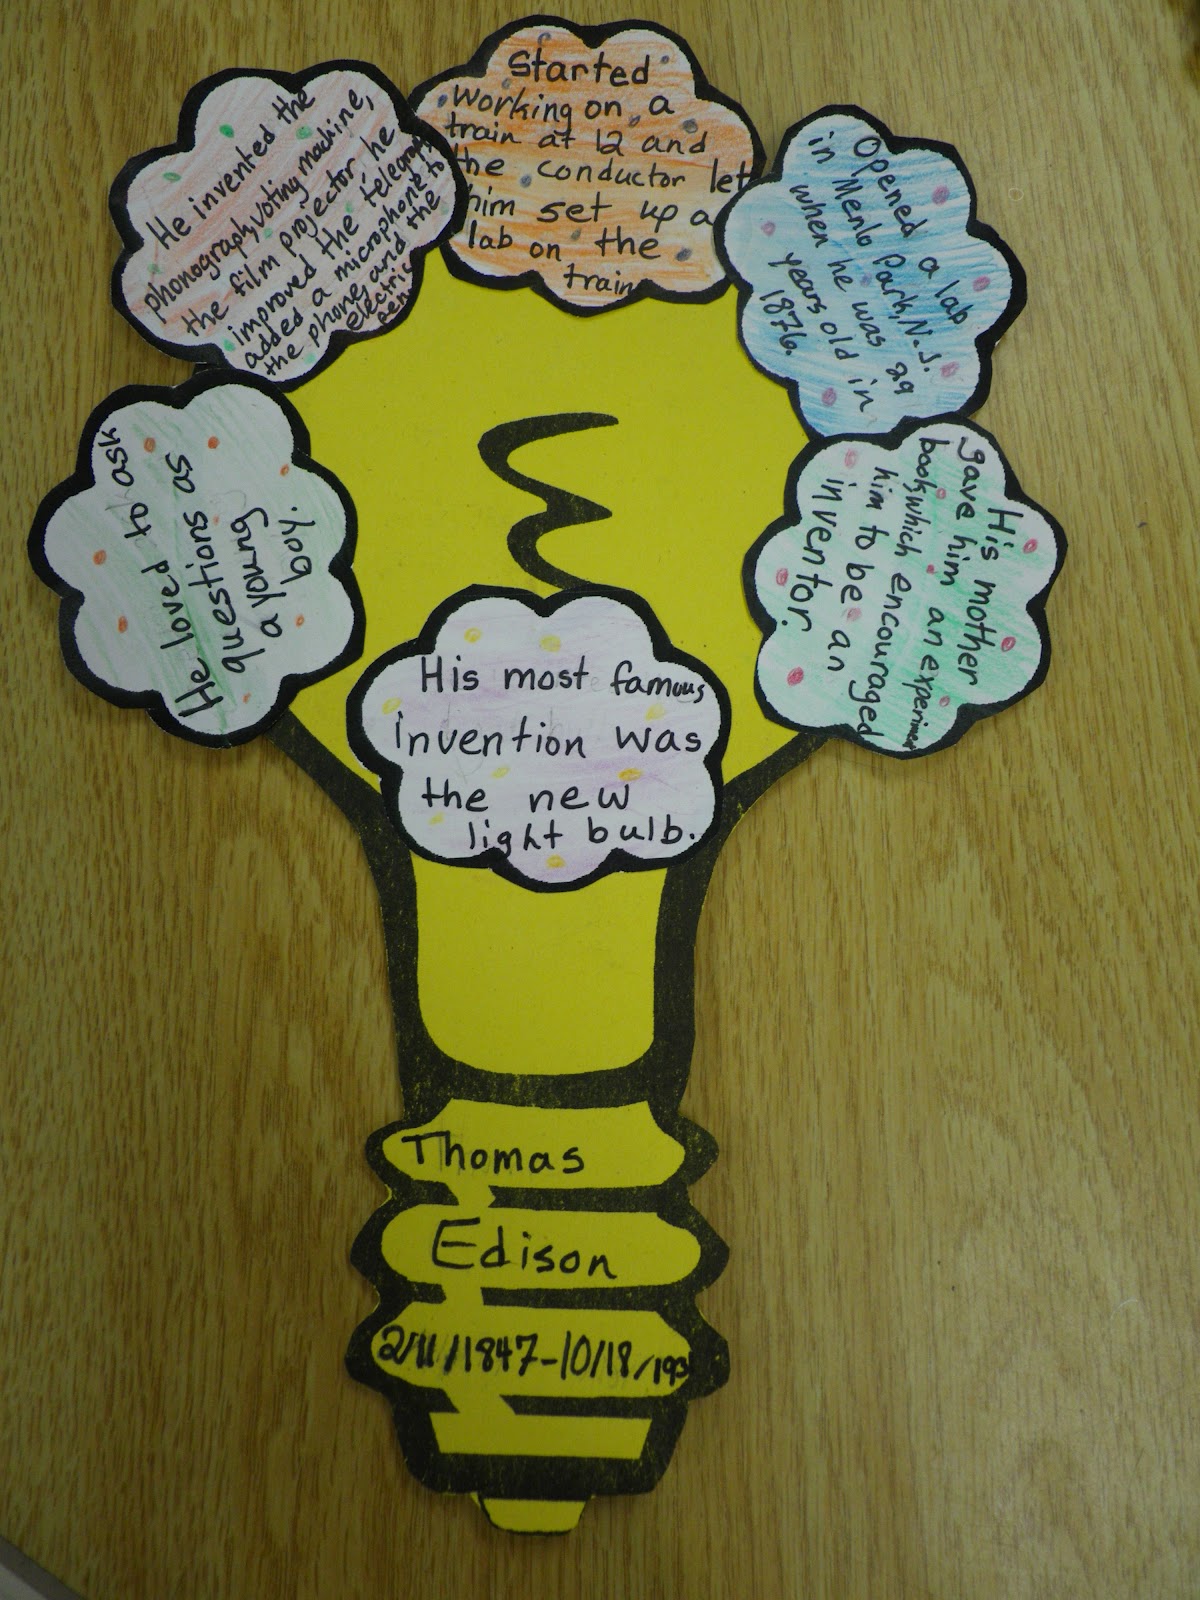 He loved to ask
questions as
a young
boy.
He invented the
phonograph, voting machine,
the film projector, he
improved the telegraph
added a microphone to
the phone, and the
electric
pen.
Started
working on a
train at 12 and
the conductor let
him set up a
lab on the
train
Opened a lab
in Menlo Park, N.J.
when he was 29
years old in
1876.
His mother
gave him an experiment
book, which encouraged
him to be an
inventor.
His most famous
invention was
the new
light bulb.
Thomas
Edison
2/11/1847-10/18/193